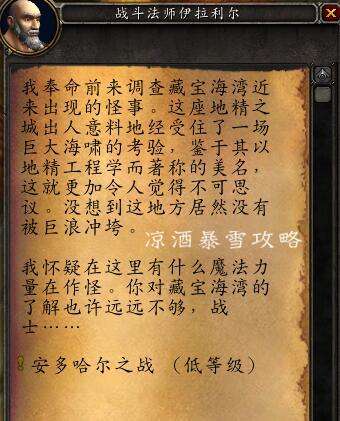 战斗法师伊拉利尔
我奉命前来调查藏宝海湾近
来出现的怪事。这座地精之
城出人意料地经受住了一场
巨大海啸的考验，鉴于其以
地精工程学而著称的美名，
这就更加令人觉得不可思
议。没想到这地方居然没有
被巨浪冲垮。
凉酒暴雪攻略
我怀疑在这里有什么魔法力
量在作怪。你对藏宝海湾的
了解也许远远不够，战
士……
安多哈尔之战（低等级）